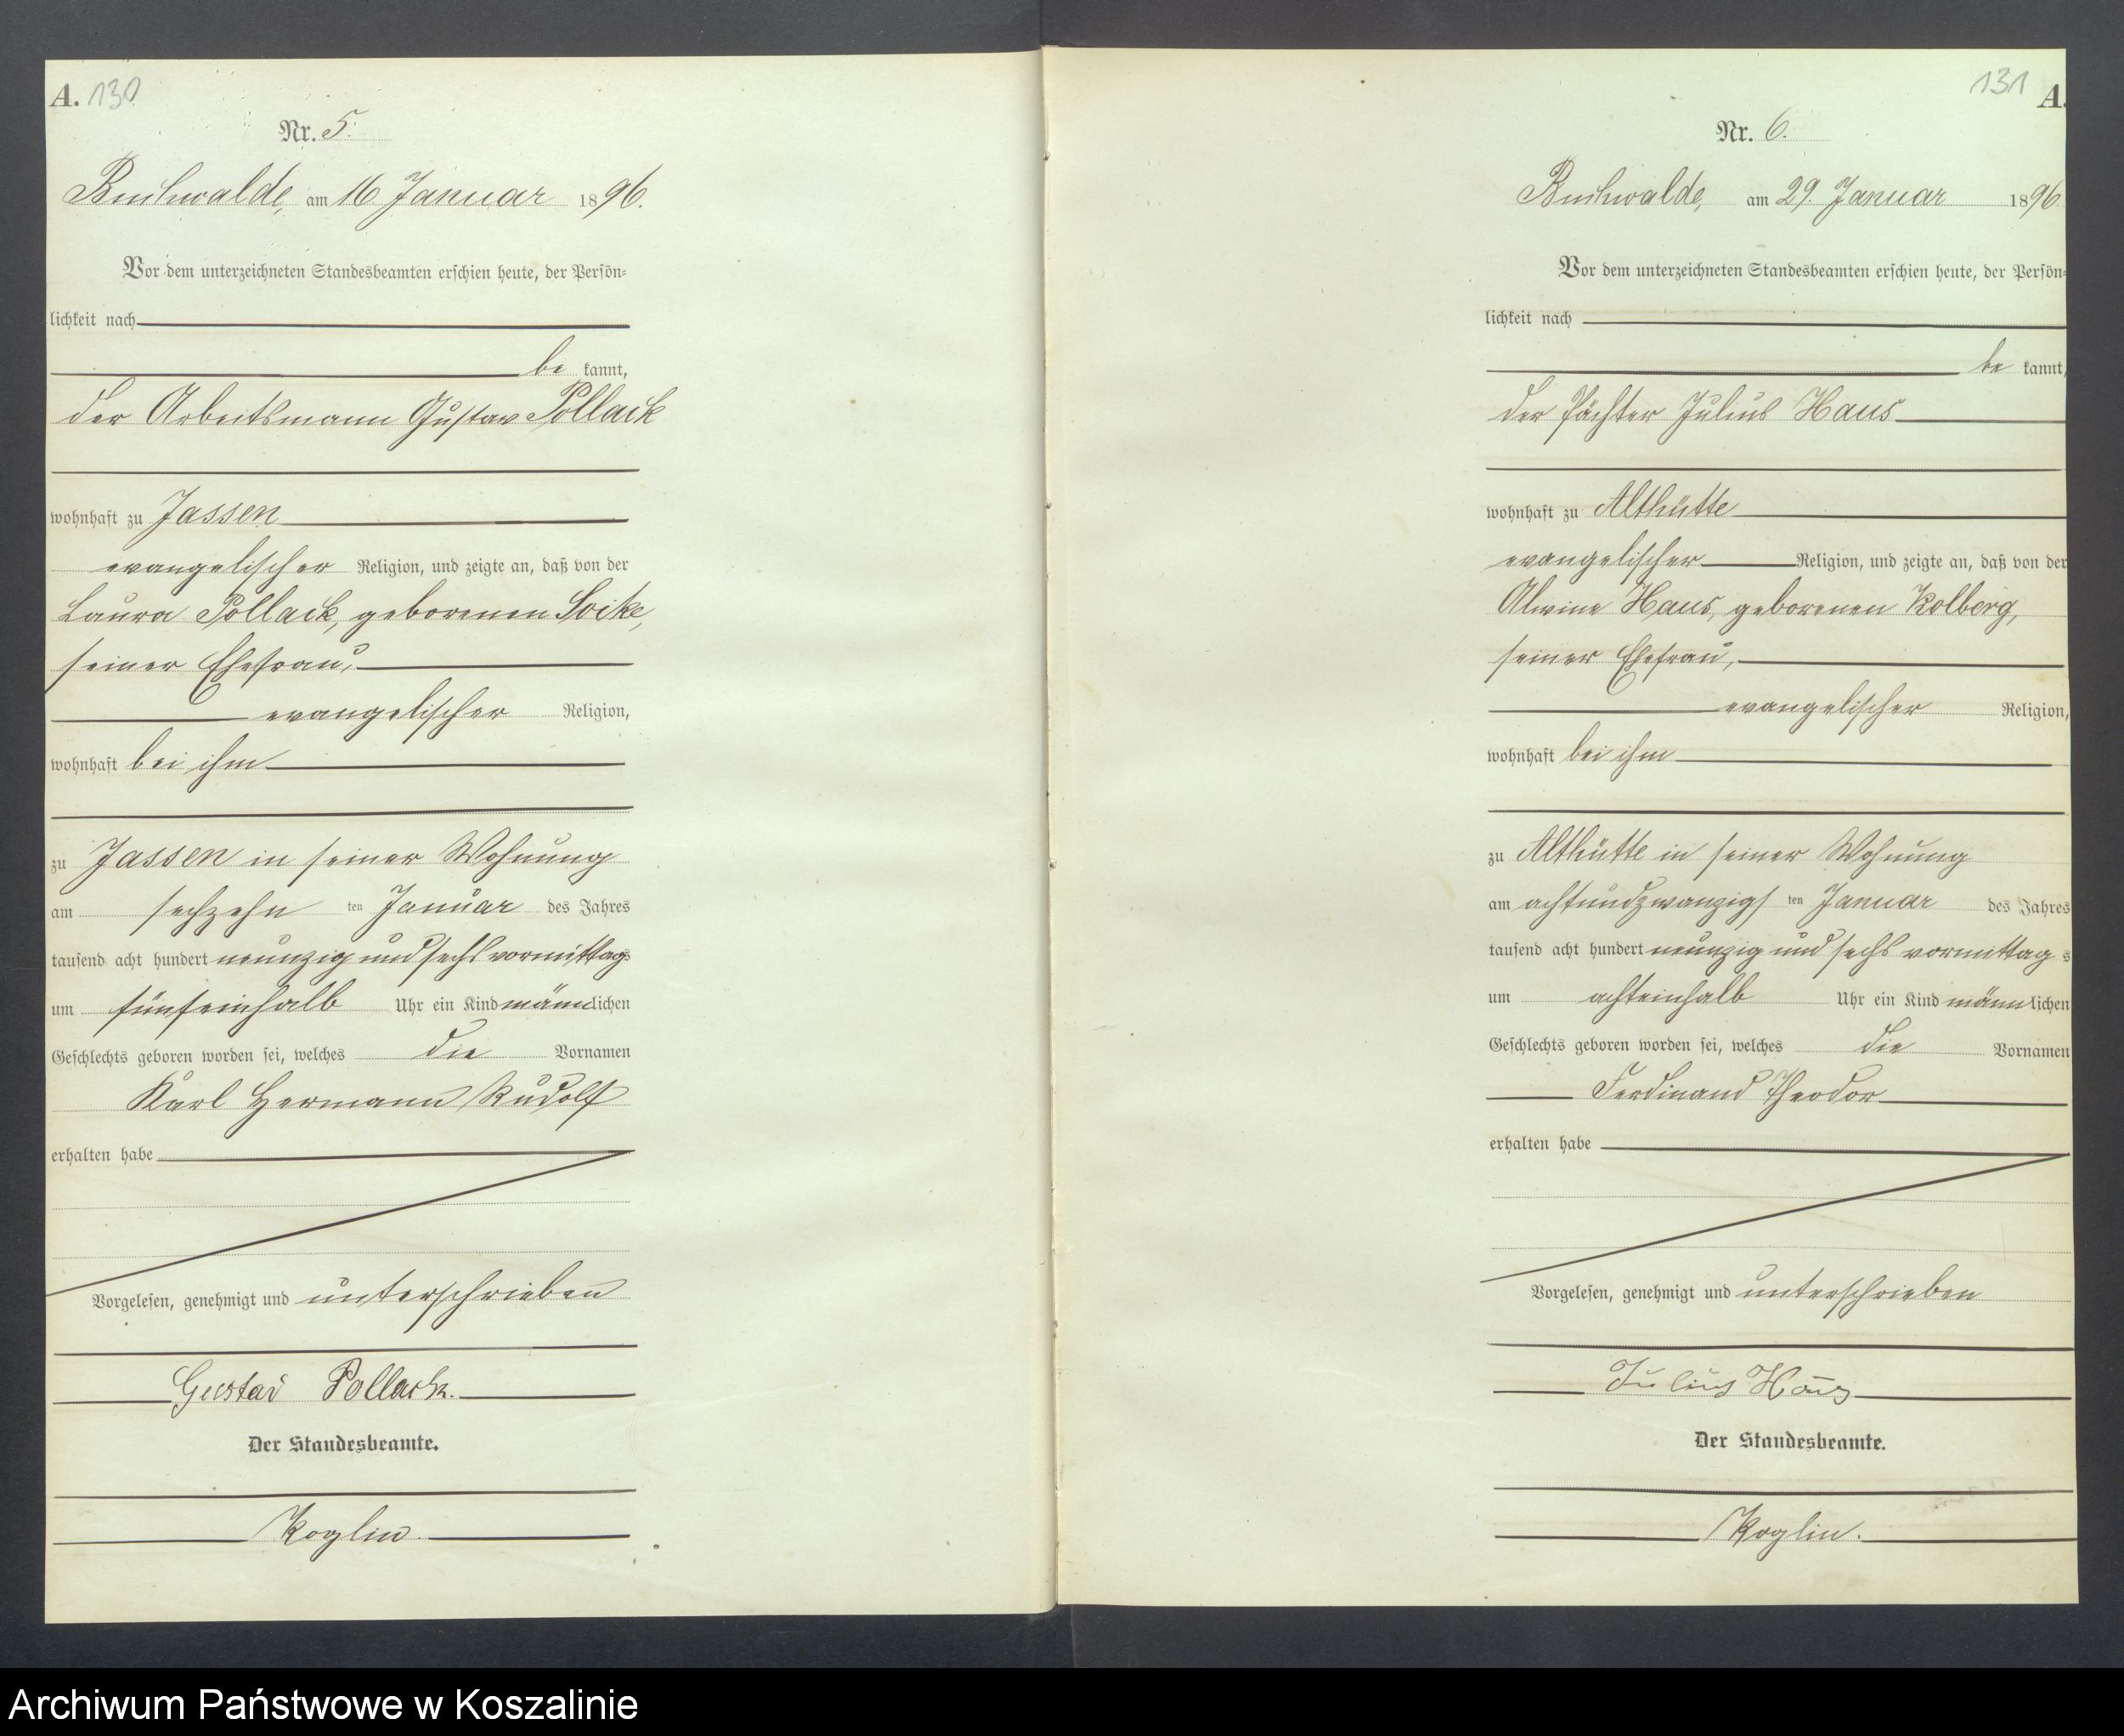 A. 130
Nr. 5.
Buchwalde, am 16 Januar 1896.
Vor dem unterzeichneten Standesbeamten erschien heute, der Persön=
lichkeit nach
be kannt,
der Arbeitsmann Gustav Pollack
wohnhaft zu Jassen
evangelischer Religion, und zeigte an, daß von der
Laura Pollack, geborenen Soike,
seiner Ehefrau,
evangelischer Religion,
wohnhaft bei ihm
zu Jassen in seiner Wohnung
am sechzehn ten Januar des Jahres
tausend acht hundert neunzig und sechs vormittags
um fünfeinhalb Uhr ein Kind männlichen
Geschlechts geboren worden sei, welches die Vornamen
Karl Hermann Rudolf
erhalten habe
Vorgelesen, genehmigt und unterschrieben
Gustav Pollack.
Der Standesbeamte.
Koglin.
131 A.
Nr. 6.
Buchwalde, am 29. Januar 1896
Vor dem unterzeichneten Standesbeamten erschien heute, der Persön=
lichkeit nach
be kannt,
der Pächter Julius Haus
wohnhaft zu Althütte
evangelischer Religion, und zeigte an, daß von der
Alwine Haus, geborenen Kolberg,
seiner Ehefrau,
evangelischer Religion,
wohnhaft bei ihm
zu Althütte in seiner Wohnung
am achtundzwanzigs ten Januar des Jahres
tausend acht hundert neunzig und sechs vormittag s
um achteinhalb Uhr ein Kind männlichen
Geschlechts geboren worden sei, welches die Vornamen
Ferdinand Theodor
erhalten habe
Vorgelesen, genehmigt und unterschrieben
Julius Haus
Der Standesbeamte.
Koglin.
Archiwum Państwowe w Koszalinie